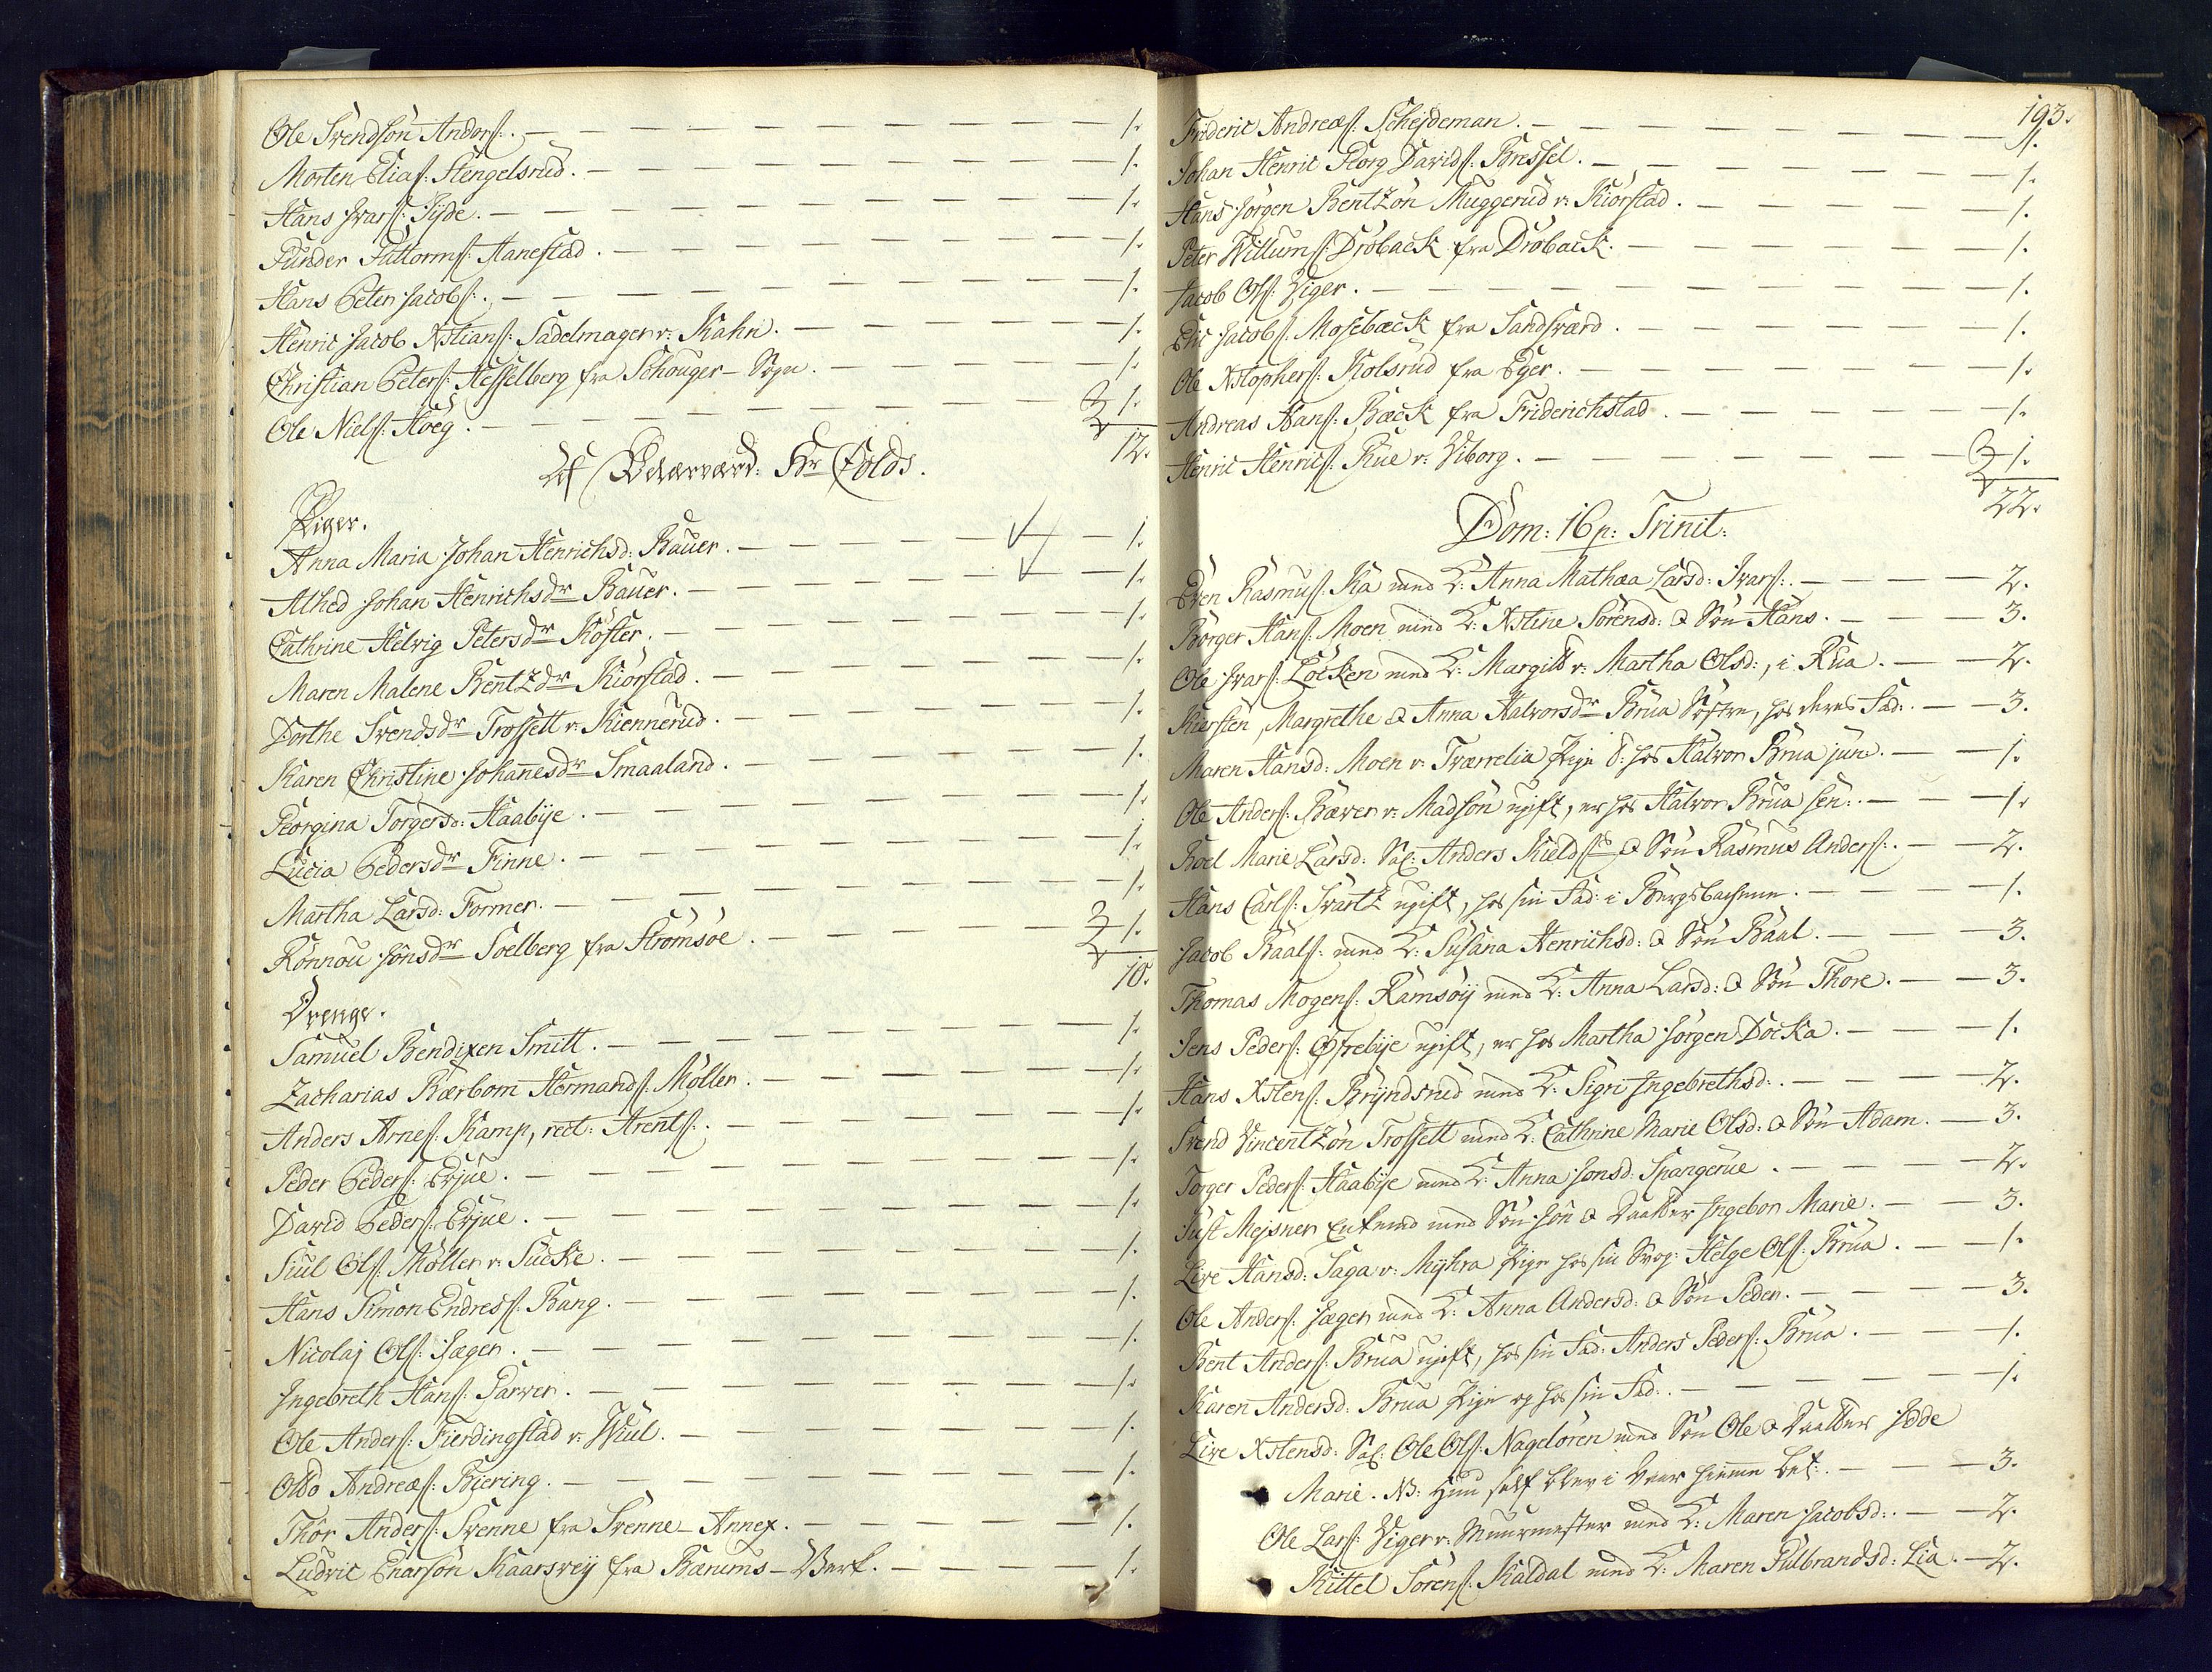 Ole Svendsøn Anders:. — 1.
Morten Elias: Stengelsrud. — 1.
Hans Ivars: Fijde. — 1.
Gunder Guttorms: Aanestad. — 1.
Hans Peter Jacobs:. — 1.
Henric Jacob Xstians: Sadelmager v: Kahn. — 1.
Christian Peters: Hesselberg fra Schouger-Sogn. — 1.
Ole Niels: Høeg. — 1.
12.
Hr Colds.
Piger.
Anna Maria Johan Henrichsd: Bauer. — 1.
Alhed Johan Henrichsdr Bauer. — 1.
Cathrine Helvig Petersdr Køster. — 1.
Maren Malene Bentzdr Kiørstad. — 1.
Dorthe Svendsdr Trossett v: Kiennerud. — 1.
Karen Christine Johanesdr Smaaland. — 1.
Georgina Torgersd: Haabije. — 1.
Lucia Pedersdr Finne. — 1.
Martha Larsd: Former. — 1.
Rønnou Jonsdr Soelberg fra Strømsøe. — 1.
10.
Drenge.
Samuel Bendixen Smitt. — 1.
Zacharias Bærbom Hermands: Møller. — 1.
Anders Arnes: Kamp, rect: Arents:. — 1.
Peder Peders: Erjue. — 1.
David Peders: Erjue. — 1.
Giul Ols: Møller v: Sucke. — 1.
Hans Simon Endress: Bang. — 1.
Nicolaj Ols: Jæger. — 1.
Ingebreth Hans: Garver. — 1.
Ole Anders: Fierdingstad v: Wiul. — 1.
Otto Andreæs: Biering. — 1.
Thor Anders: Svenne fra Svenne-Annex. — 1.
Ludvic Enersøn Kaarsveij fra Bærums-Verk. — 1.
193.
Frideric Andreæs: Schejdeman. — 1.
Johan Henric Georg Davids: Bressel. — 1.
Hans Jørgen Bentzøn Muggerud v: Kiørstad. — 1.
Peter Willums: Drøback fra Drøback. — 1.
Jacob Ols: Viger. — 1.
Eric Jacobs: Mosebæck fra Sandsværd. — 1.
Ole Xstophers: Kolsrud fra Eger. — 1.
Andreas Hans: Bæck fra Friderichstad. — 1.
Henric Henrics: Rue v: Viborg. — 1.
22.
Dom: 16 p: Trinit:
Even Rasmus: Ka med K: Anna Mathæa Larsd: Ivars:. — 2.
Børger Hans: Moen med K: Xstine Sørensd: & Søn Hans. — 3.
Ole Ivars: Løcken med K: Margith v: Martha Olsd:, i Rua. — 2.
Kiersten, Margrethe & Anna Halvorsdr Brua Søstre, hos deres Fad:. — 3.
Maren Hansd: Moen v: Tværrelia Pige & hos Halvor Brua jun. — 1.
Ole Anders: Bæver v: Madsøn ugift, er hos Halvor Brua sen:. — 1.
Boel Marie Larsd: Sal: Anders Kields: & Søn Rasmus Anders:. — 2.
Hans Carls: Svartz ugift, hos sin Fad: i Bergsbachene. — 1.
Jacob Baals: med K: Susana Henrichsd: & Søn Baal. — 3.
Thomas Mogens: Ramsøij med K: Anna Larsd: & Søn Thore. — 3.
Jens Peders: Østrebije ugift, er hos Martha Jørgen Docka. — 1.
Hans Xstens: Brÿndsrud med K: Sigri Ingebrethsd:. — 2.
Svend Vincentzøn Trossett med K: Cathrine Marie Olsd: & Søn Adam. — 3.
Torger Peders: Haabije med K: Anna Jonsd: Spangerue. — 2.
Just Mejsner Enkemd med Søn Jon & Daatter Ingebor Marie. — 3.
Live Hansd: Saga v: Myhra Pige hos sin Svog: Helge Ols: Brua. — 1.
Ole Anders: Jæger med K: Anna Andersd: & Søn Peder. — 3.
Bent Anders: Brua ugift, hos sin Fad: Anders Peders: Brua. — 1.
Karen Andersd: Brua Pige og hos sin Fad:. — 1.
Live Xstensd: Sal: Ole Ols: Nageløren med Søn Ole & Daatter Hedde
Marie. NB: Hun self blev i Vaar hiemme bet:. — 3.
Ole Lars: Viger v: Muurmester med K: Maren Jacobsd:. — 2.
Kittel Sørens: Kaldal med K: Maren Gulbrandsd: Lia. — 2.